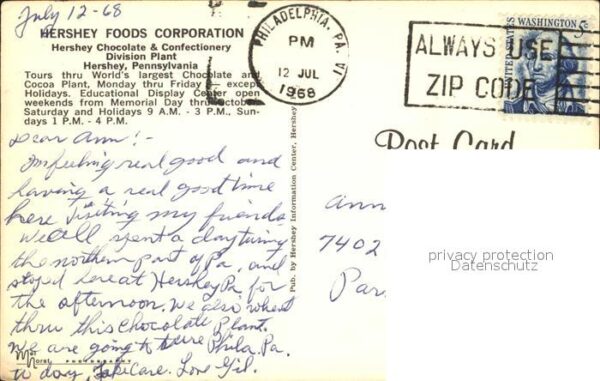 July 12-68
HERSHEY FOODS CORPORATION
Hershey Chocolate & Confectionery
Division Plant
Hershey, Pennsylvania
Tours thru World's largest Chocolate and
Cocoa Plant, Monday thru Friday except
Holidays. Educational Display Center open
weekends from Memorial Day thru October
Saturday and Holidays 9 A.M. - 3 P.M., Sun-
days 1 P.M. - 4 P.M.
Dear Ann! -
Im feeling real good and
having a real good time
here visiting my friends
We all spent a day
the northern part of Pa. and
stoped here at Hershey Pa. for
the afternoon. We also went
thru this Chocolate Plant.
We are going to Phila. Pa.
to day, Take Care. Love Gil.
Pub. by Hershey Information Center, Hershey
PHILADELPHIA, PA.
PM
12 JUL
1968
ALWAYS USE
ZIP CODE
UNITED STATES
WASHINGTON 5c
Post Card
Ann
7402
Par
privacy protection
Datenschutz